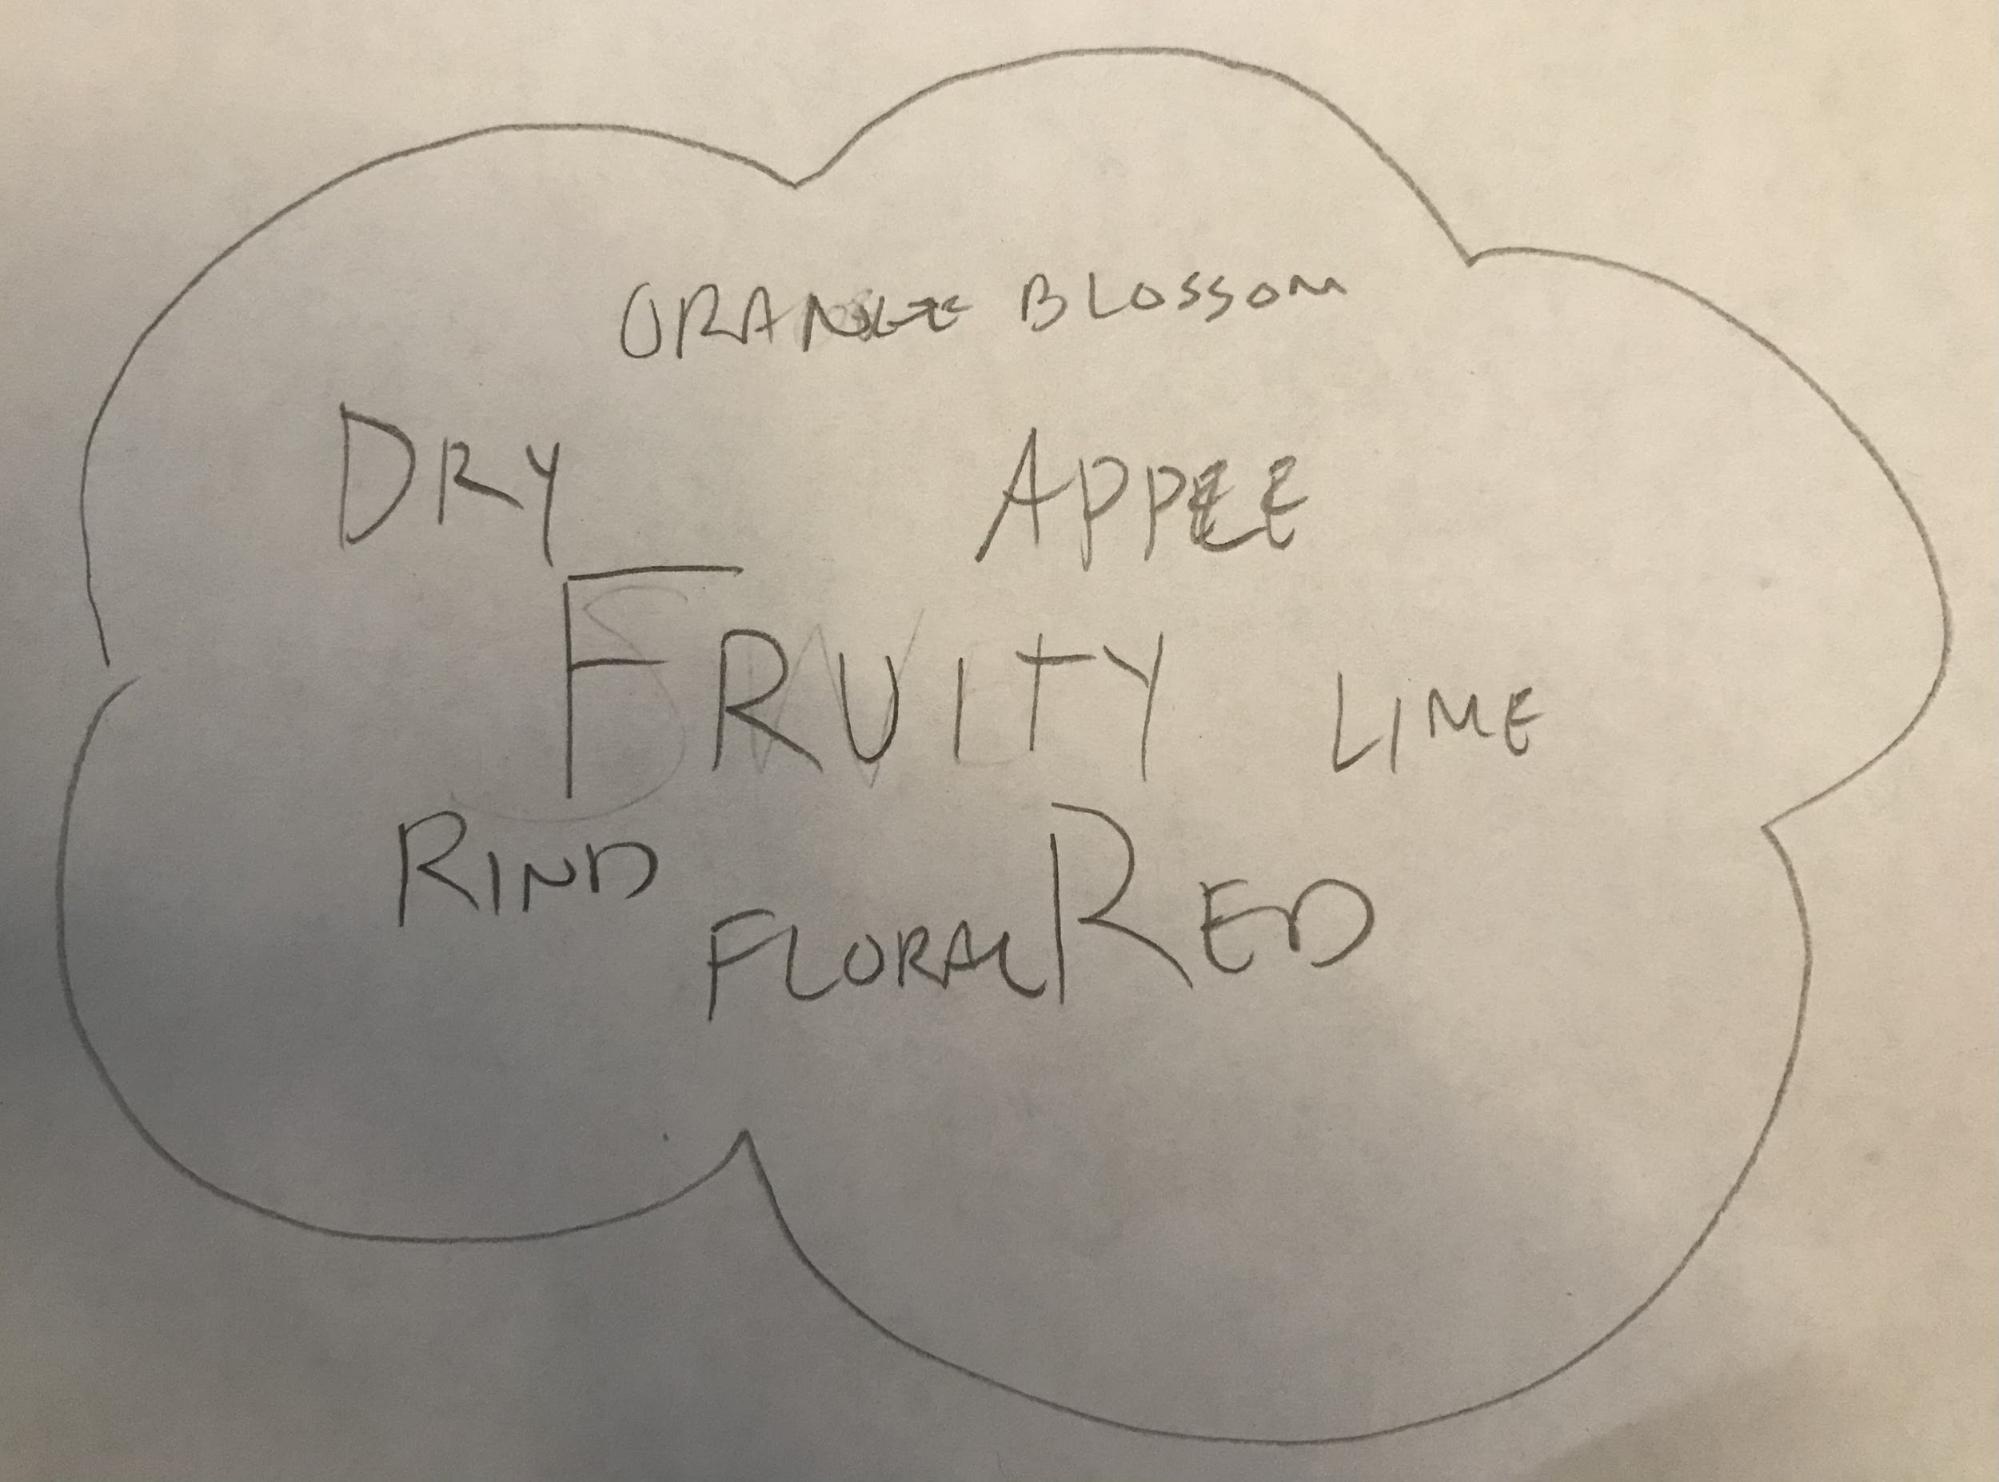 ORANGE BLOSSOM
DRY
APPLE
FRUITY
LIME
RIND
FLORAL
RED